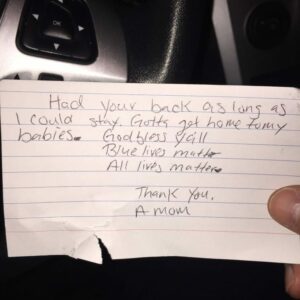 OK
Had your back as long as
I could stay. Gotta get home to my
babies. Godbless yall
Blue lives matter
All lives matter
Thank You,
A mom